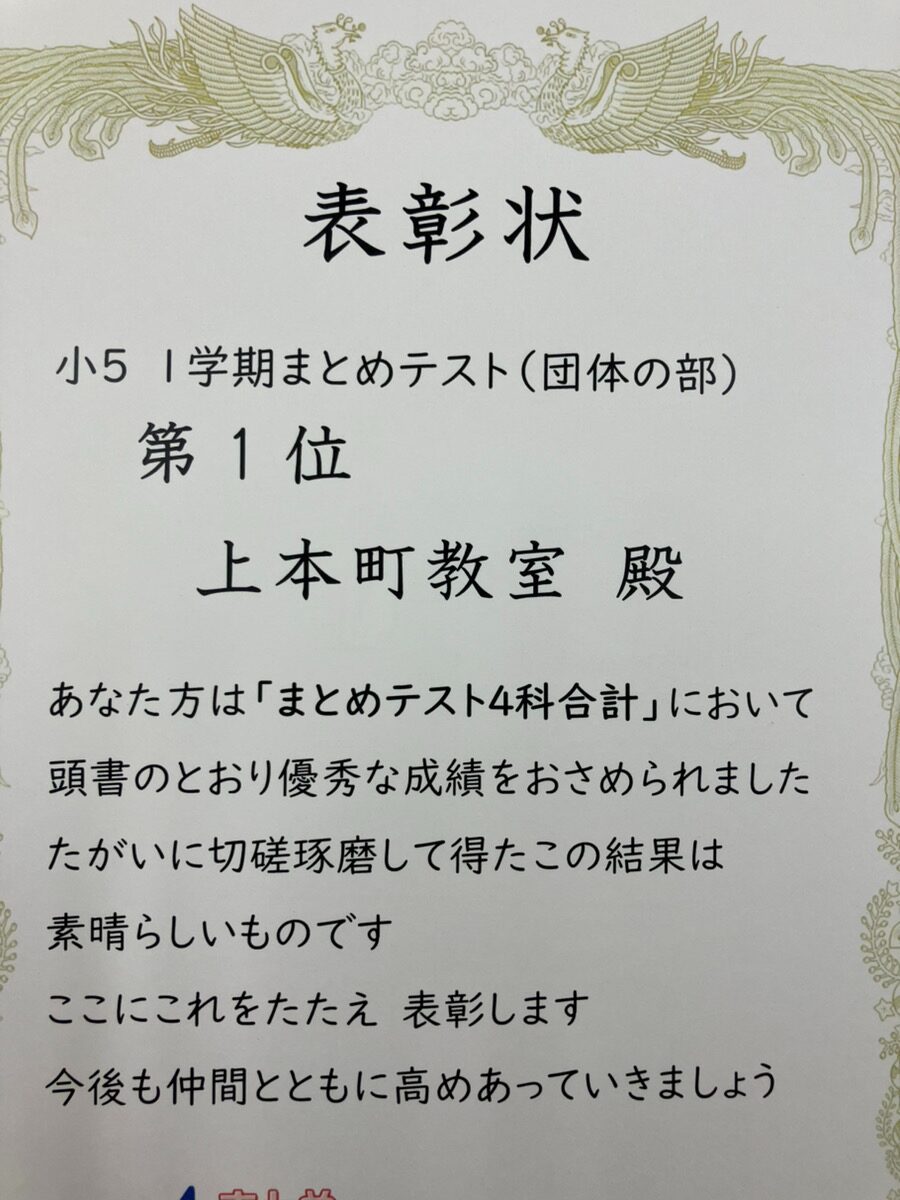 表彰状
小5 1学期まとめテスト(団体の部)
第1位
上本町教室 殿
あなた方は「まとめテスト4科合計」において
頭書のとおり優秀な成績をおさめられました
たがいに切磋琢磨して得たこの結果は
素晴らしいものです
ここにこれをたたえ 表彰します
今後も仲間とともに高めあっていきましょう